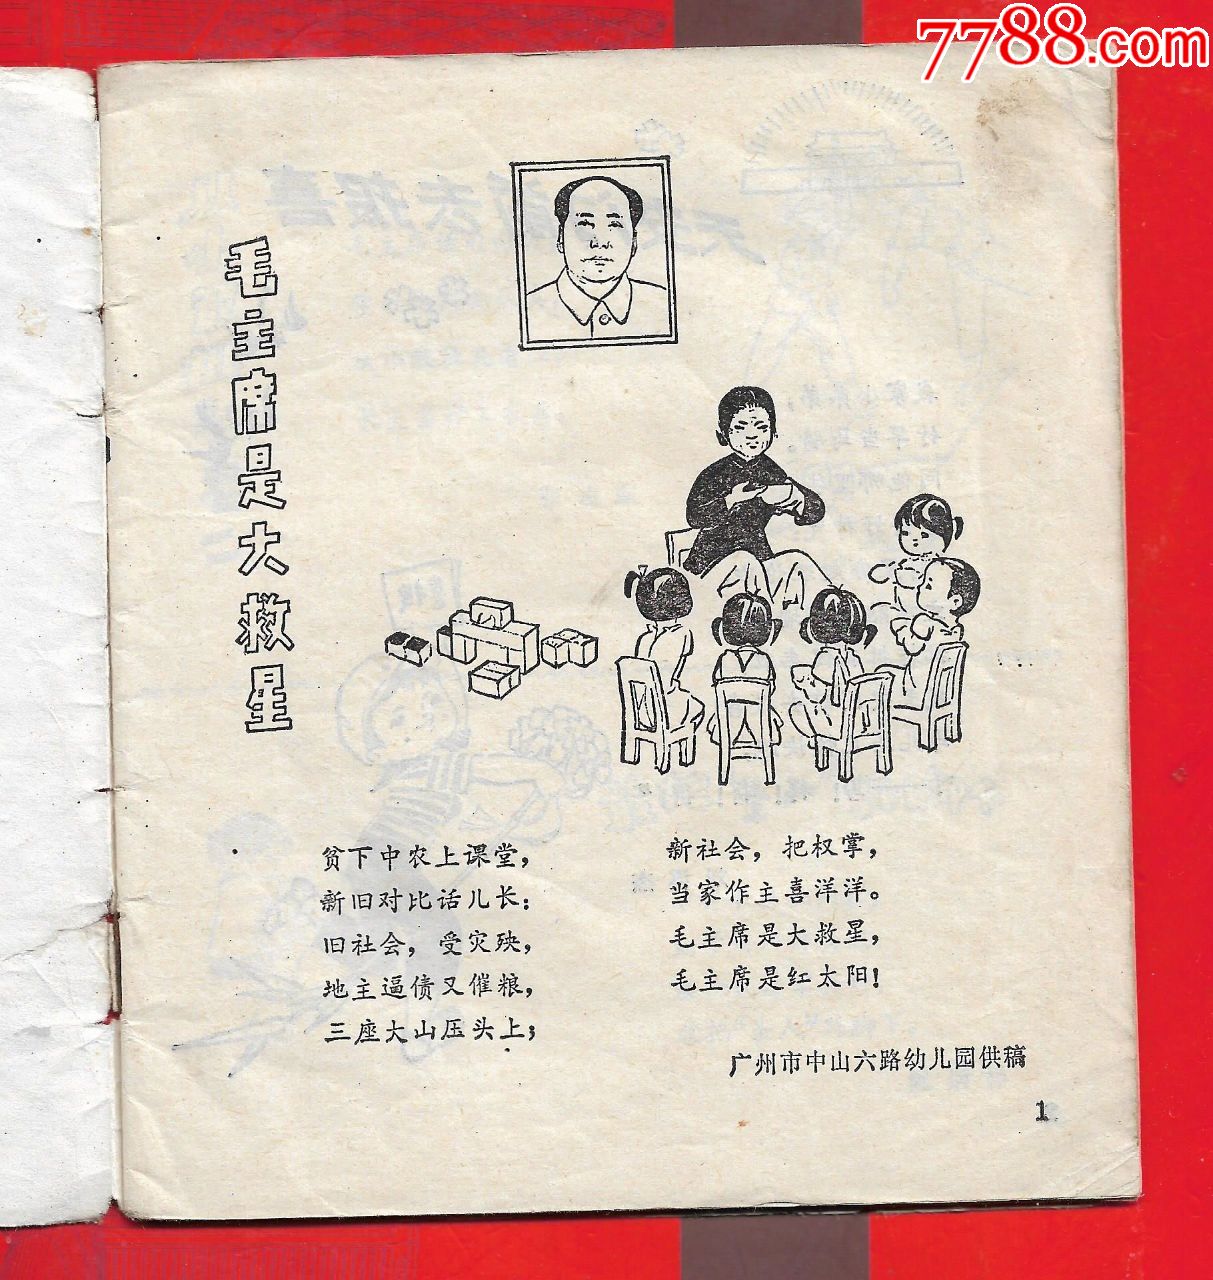 7788.com
毛主席是大救星
贫下中农上课堂，
新旧对比话儿长：
旧社会，受灾殃，
地主逼债又催粮，
三座大山压头上；
新社会，把权掌，
当家作主喜洋洋。
毛主席是大救星，
毛主席是红太阳！
广州市中山六路幼儿园供稿
1